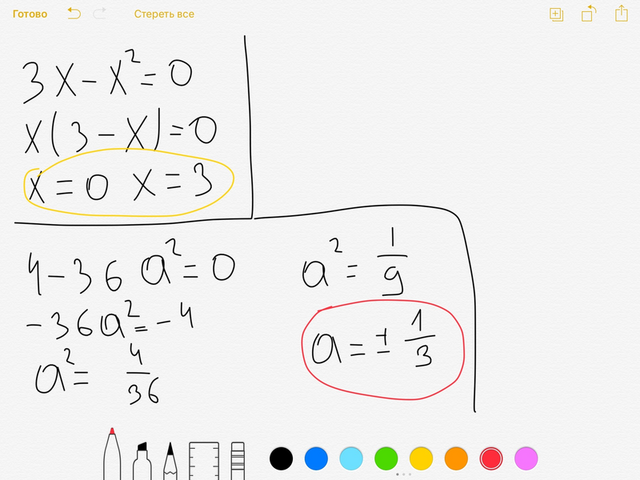 Готово Стереть все
3x-x²=0
x(3-x)=0
x=0 x=3
4-36a²=0
-36a²=-4
a²=4/36
a²=1/9
a=±1/3